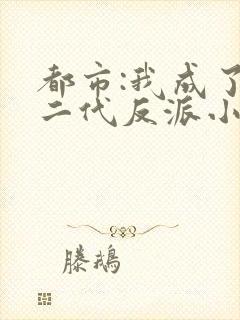 都市:我成了
二代反派小
滕鹅